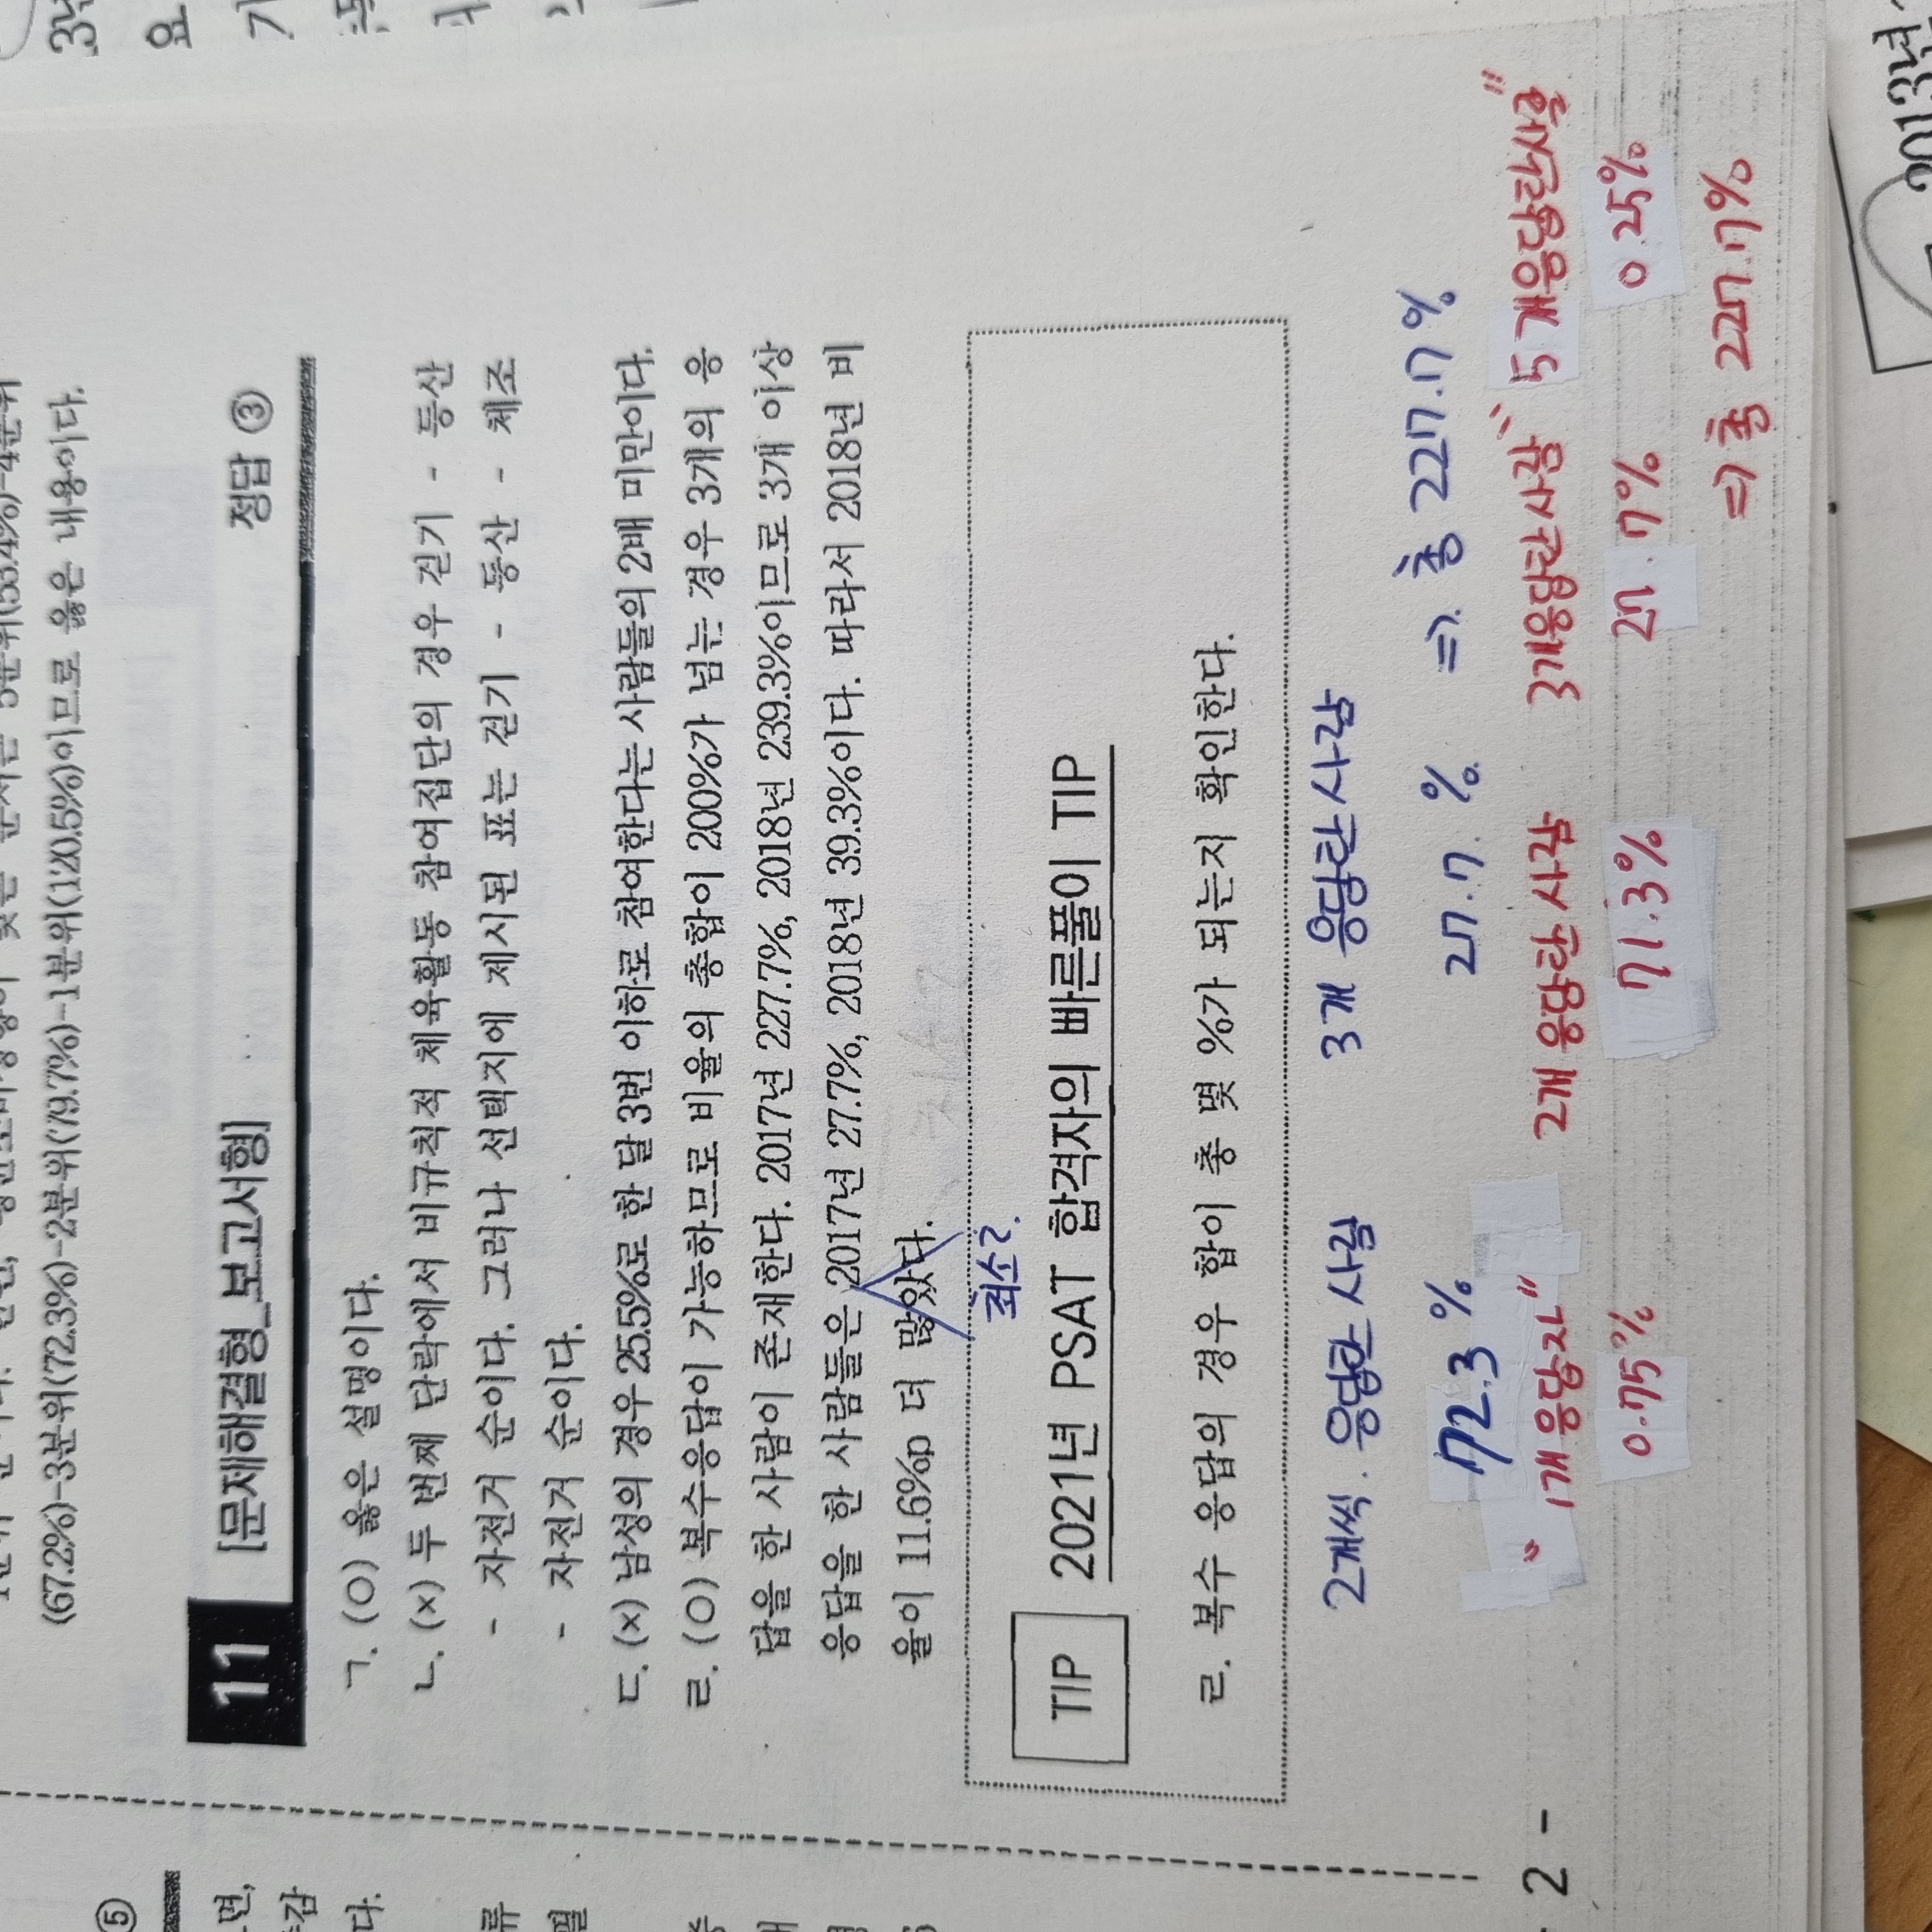 (67.2%)-3분위(72.3%)-2분위(79.7%)-1분위(120.5%)이므로 옳은 내용이다.
11 [문제해결형_보고서형] 정답 ③
ㄱ. (O) 옳은 설명이다.
ㄴ. (×) 두 번째 단락에서 비규칙적 체육활동 참여집단의 경우 걷기 - 등산
- 자전거 순이다. 그러나 선택지에 제시된 표는 걷기 - 등산 - 체조
- 자전거 순이다.
ㄷ. (×) 남성의 경우 25.5%로 한 달 3번 이하로 참여한다는 사람들의 2배 미만이다.
ㄹ. (O) 복수응답이 가능하므로 비율의 총합이 200%가 넘는 경우 3개의 응
답을 한 사람이 존재한다. 2017년 227.7%, 2018년 239.3%이므로 3개 이상
응답을 한 사람들은 2017년 27.7%, 2018년 39.3%이다. 따라서 2018년 비
율이 11.6%p 더 많았다.
최소?
TIP 2021년 PSAT 합격자의 빠른풀이 TIP
ㄹ. 복수 응답의 경우 합이 총 몇 %가 되는지 확인한다.
2개씩 응답한 사람 3개 응답한 사람
72.3 % 27.7 % ⇒ 총 227.7 %
"1개 응답자" 2개 응답한 사람 3개응답한 사람 "5개응답한사람"
0.75% 71.3% 27.7% 0.25%
⇒ 총 227.7%
- 2 -
⑤
면,
다.
류
2013년